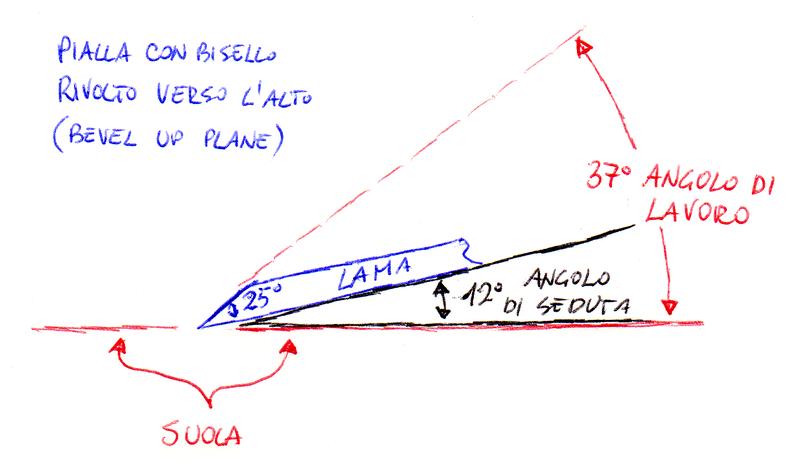 PIALLA CON BISELLO
RIVOLTO VERSO L'ALTO
(BEVEL UP PLANE)
37° ANGOLO DI
LAVORO
LAMA
25°
12° ANGOLO
DI SEDUTA
SUOLA